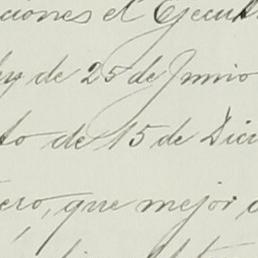 ciones el Ejecut
ley de 25 de Junio
to de 15 de Dici
ero, que mejor